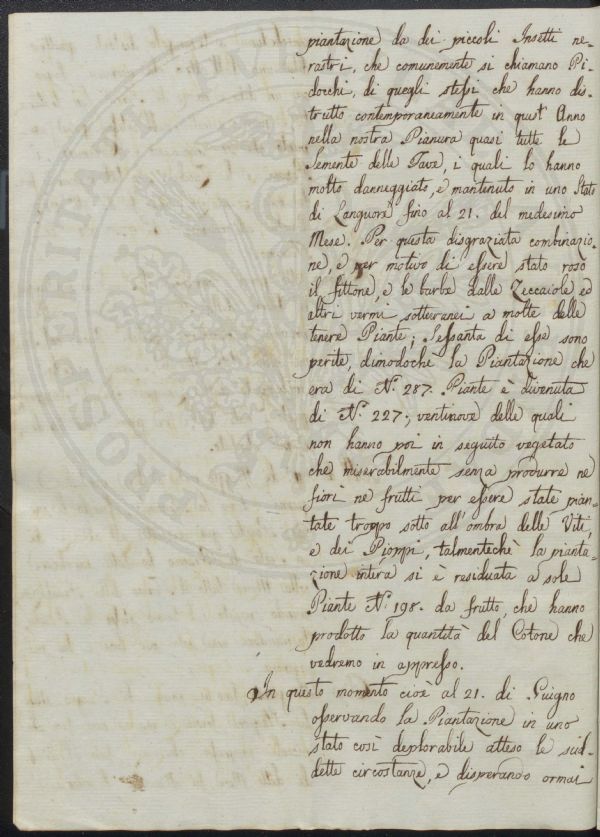 piantazione da dei piccoli Insetti ne-
rastri, che comunemente si chiamano Pi-
docchi, di quegli stessi che hanno dis-
trutto contemporaneamente in quest' Anno
nella nostra Pianura quasi tutte le
Semente delle Fave, i quali lo hanno
molto danneggiato, e mantenuto in uno Stato
di Languore fino al 21. del medesimo
Mese. Per questa disgraziata combinazio-
ne, e per motivo di essere stato roso
il fittone, e le barbe dalle Zeccaiole ed
altri vermi sotterranei a molte delle
tenere Piante; Sessanta di esse sono
perite, dimodochè la Piantazione che
era di N.° 287. Piante è divenuta
di N.° 227., ventinove delle quali
non hanno poi in seguito vegetato
che miserabilmente senza produrre ne
fiori ne frutti per essere state pian-
tate troppo sotto all'ombra delle Viti,
e dei Pioppi, talmentechè la pianta-
zione intera si è residuata a sole
Piante N.° 198. da frutto, che hanno
prodotto la quantità del Cotone che
vedremo in appresso.
In questo momento cioè al 21. di Giugno
osservando la Piantazione in uno
stato così deplorabile atteso le sud-
dette circostanze, e disperando ormai
PROSPERITATI